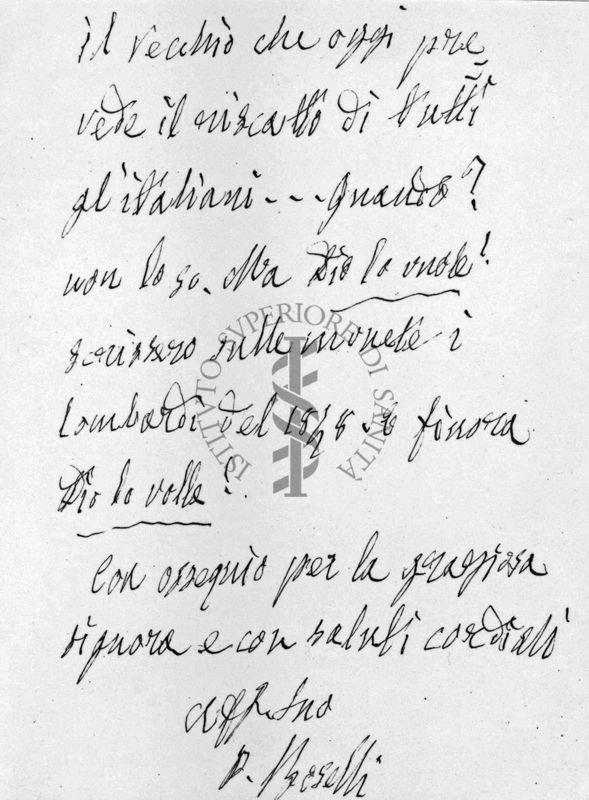 il vecchio che oggi pre
vede il riscatto di tutti
gl'italiani --- Quando?
non lo so. Ma Dio lo vuole!
scrissero sulle monete i
Lombardi del 1848 e finora
Dio lo volle!
Con ossequio per la graziosa
signora e con saluti cordiali
aff. suo
P. Boselli
ISTITUTO SVPERIORE DI SANITÀ